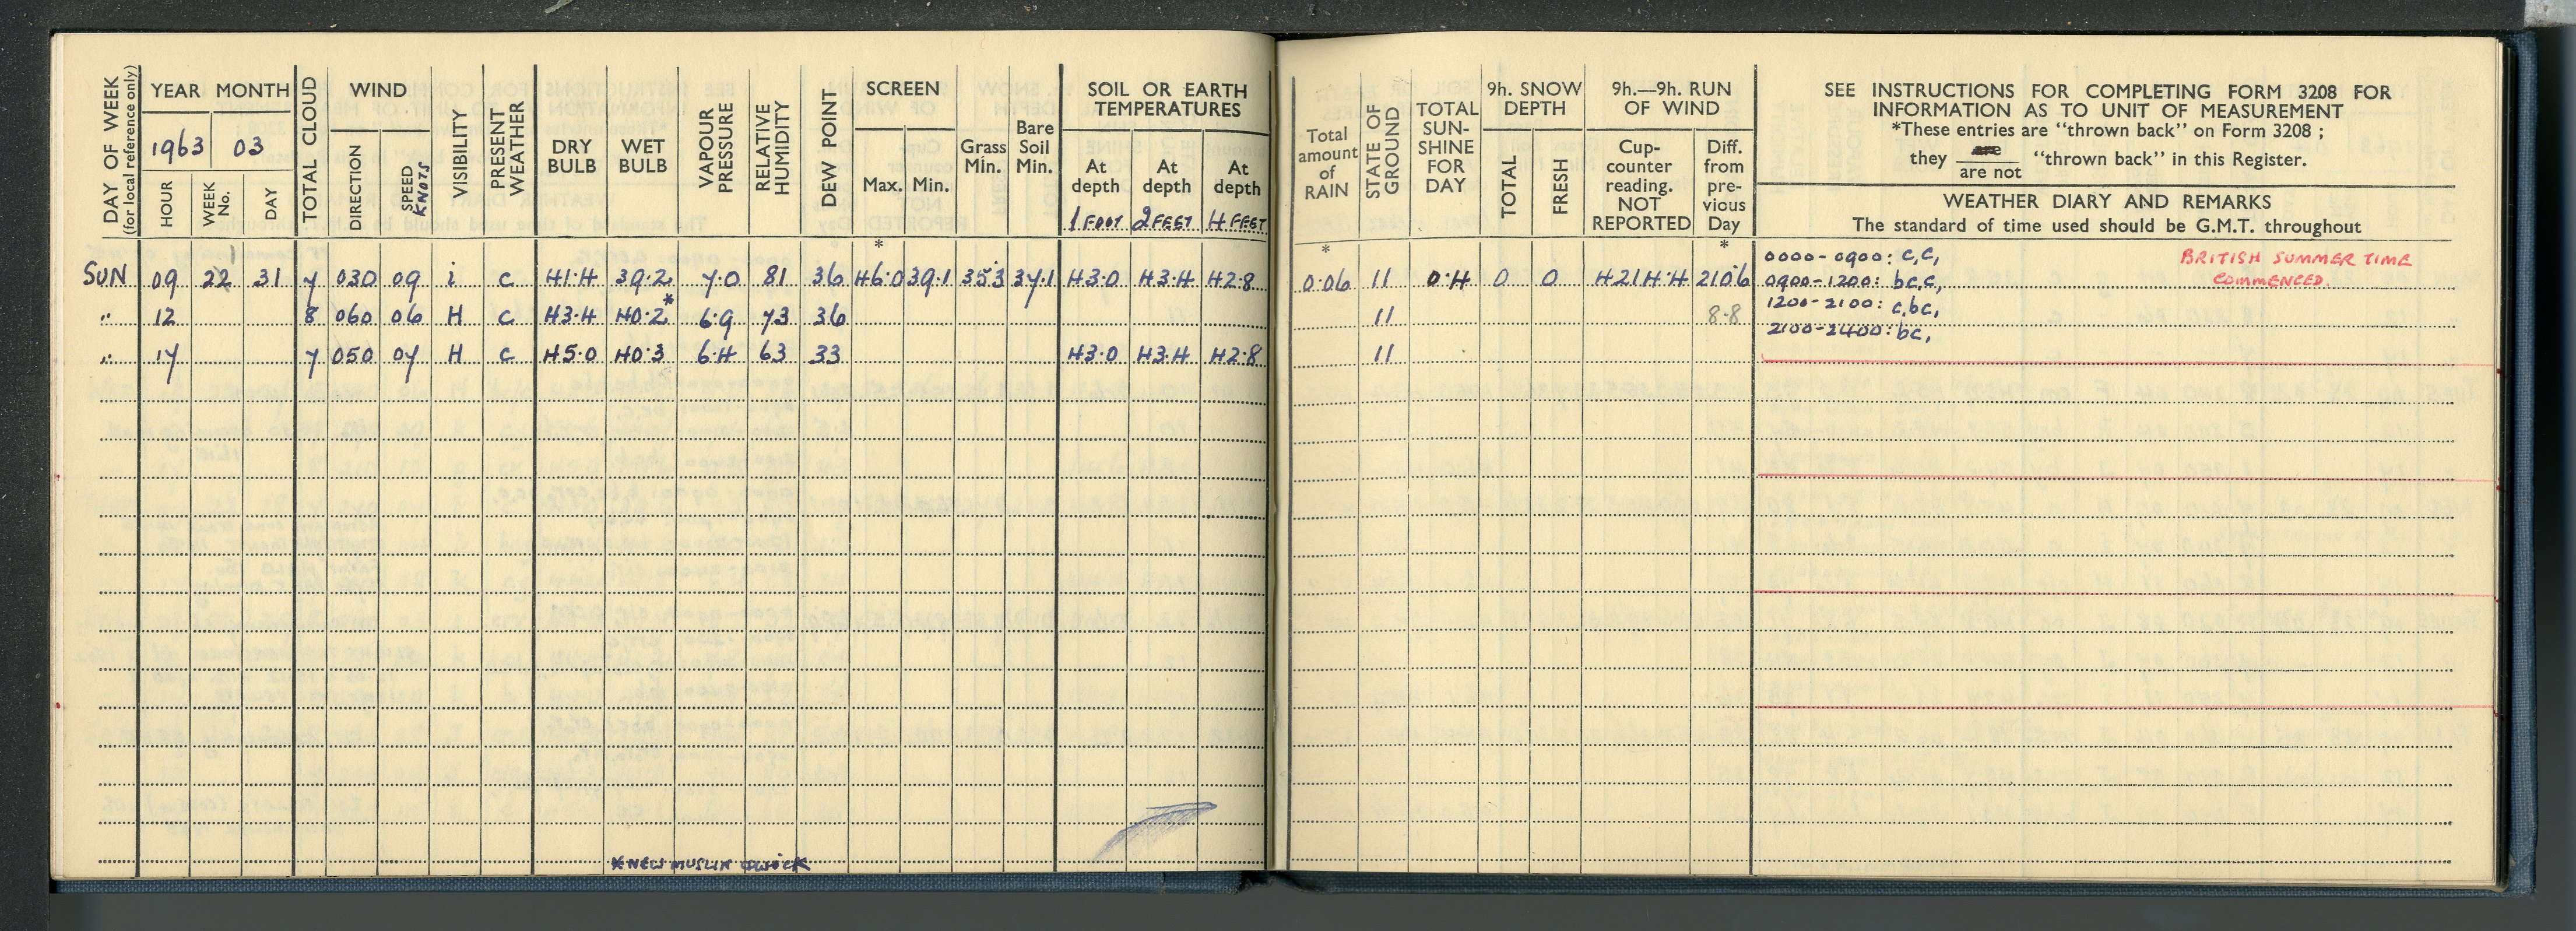 DAY OF WEEK
(for local reference only)
YEAR MONTH
1963 03
HOUR
WEEK No.
DAY
TOTAL CLOUD
WIND
DIRECTION
SPEED
KNOTS
VISIBILITY
PRESENT WEATHER
DRY BULB
WET BULB
VAPOUR PRESSURE
RELATIVE HUMIDITY
DEW POINT
SCREEN
Max. Min.
Grass Min.
Bare Soil Min.
SOIL OR EARTH
TEMPERATURES
At depth At depth At depth
1 FOOT 2 FEET 4 FEET
Total amount of RAIN
STATE OF GROUND
TOTAL SUN-SHINE FOR DAY
9h. SNOW DEPTH
TOTAL
FRESH
9h.—9h. RUN OF WIND
Cup-counter reading. NOT REPORTED
Diff. from pre-vious Day
SEE INSTRUCTIONS FOR COMPLETING FORM 3208 FOR
INFORMATION AS TO UNIT OF MEASUREMENT
*These entries are "thrown back" on Form 3208 ;
they are "thrown back" in this Register.
are not
WEATHER DIARY AND REMARKS
The standard of time used should be G.M.T. throughout
* * *
SUN 09 22 31 7 030 09 i c 41.4 39.2 7.0 81 36 46.0 39.1 35.3 37.1 43.0 43.4 42.8 0.06 11 0.4 0 0 4214.4 210.6
" 12 8 060 06 4 c 43.4 40.2* 6.9 73 36 11 8.8
" 17 7 050 07 4 c 45.0 40.3 6.4 63 33 43.0 43.4 42.8 11
0000-0900: c,c,
0900-1200: bc,c,
1200-2100: c,bc,
2100-2400: bc,
BRITISH SUMMER TIME
COMMENCED.
* NEW MUSLIN & WICK